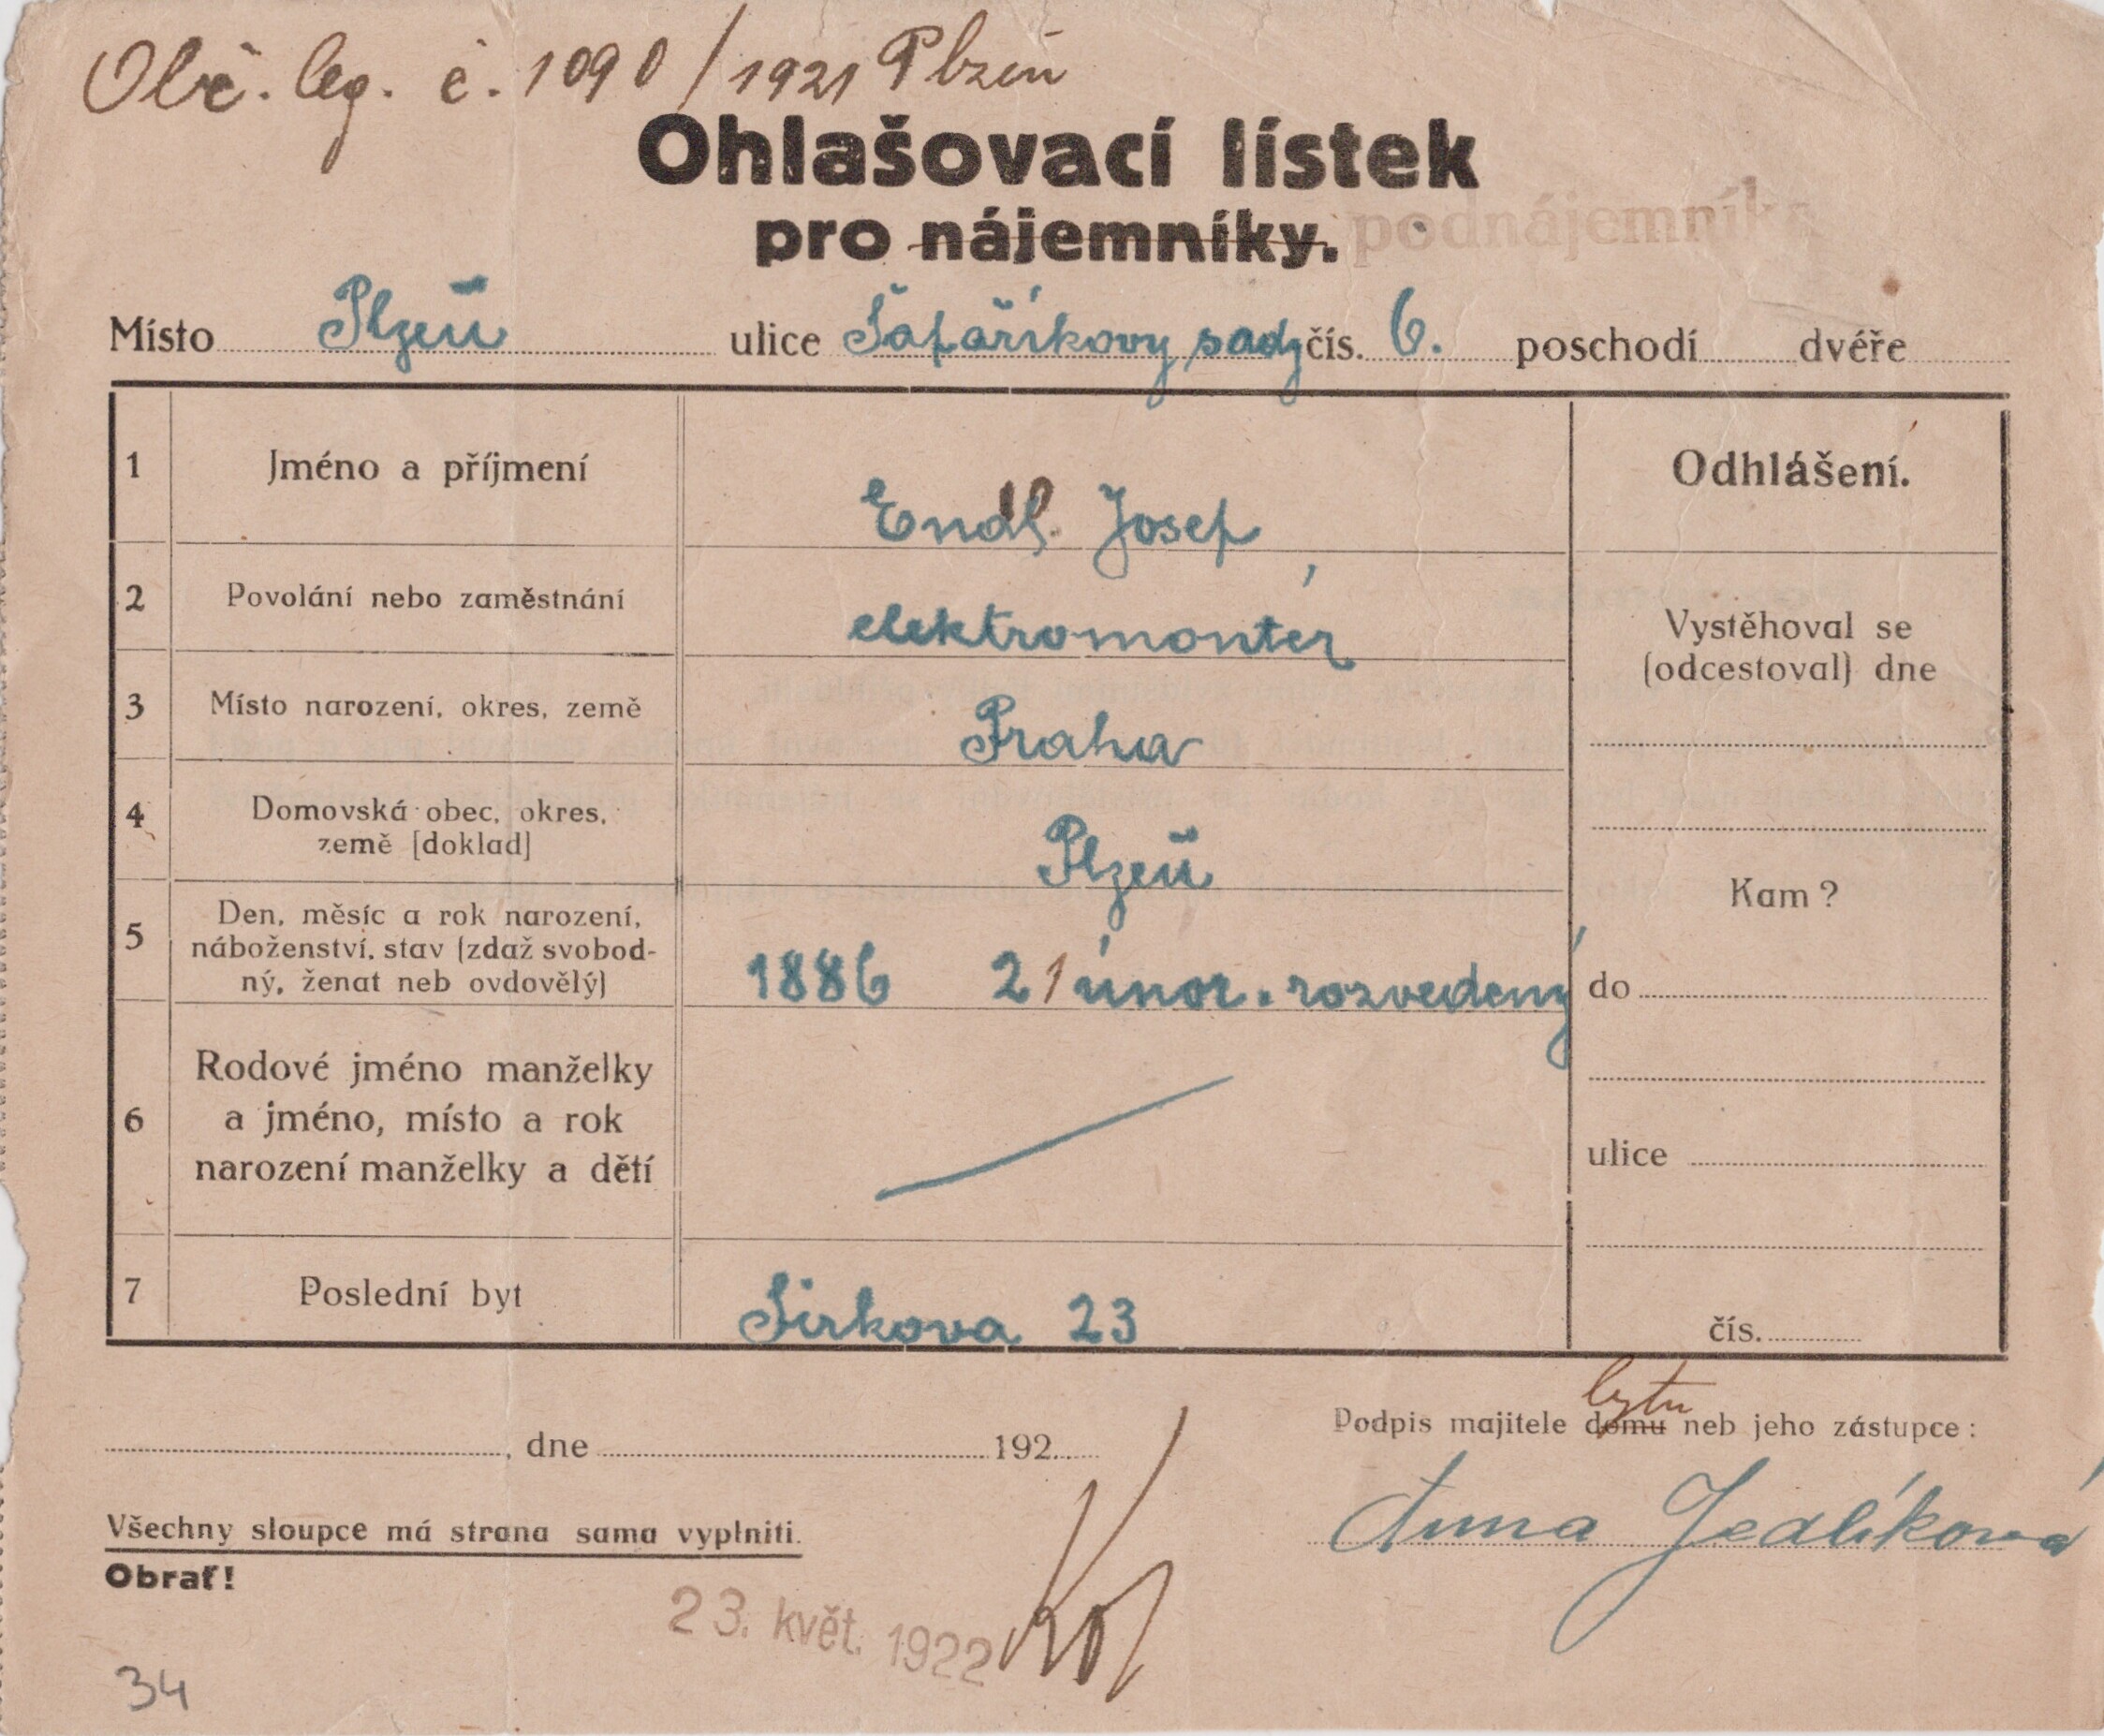 Obč. leg. č. 1090/1921 Plzeň
Ohlašovací lístek
pro nájemníky. podnájemníka
Místo Plzeň ulice Šafaříkovy sady čís. 6. poschodí dvéře
1 Jméno a příjmení Endl. Josef Odhlášení.
2 Povolání nebo zaměstnání elektromontér
Vystěhoval se
(odcestoval) dne
3 Místo narození, okres, země Praha
4 Domovská obec, okres,
země [doklad] Plzeň
Kam?
5 Den, měsíc a rok narození,
náboženství, stav (zdaž svobod-
ný, ženat neb ovdovělý) 1886 21 únor. rozvedený
do
6 Rodové jméno manželky
a jméno, místo a rok
narození manželky a dětí
ulice
7 Poslední byt Sirkova 23
čís.
bytu
Podpis majitele domu neb jeho zástupce:
, dne 192
Anna Jedlíková
Všechny sloupce má strana sama vyplniti.
Obrať!
23. květ. 1922
34